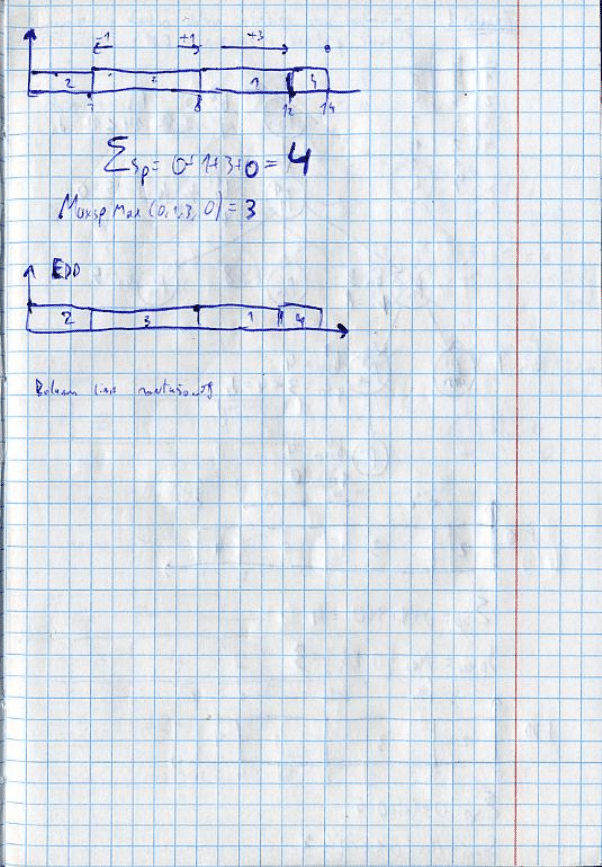 -1 +1 +3
2 1 4
7 8 12 14
Σsp = 0+1+3+0 = 4
Maxsp Max (0,1,3,0) = 3
EDD
2 3 1 4